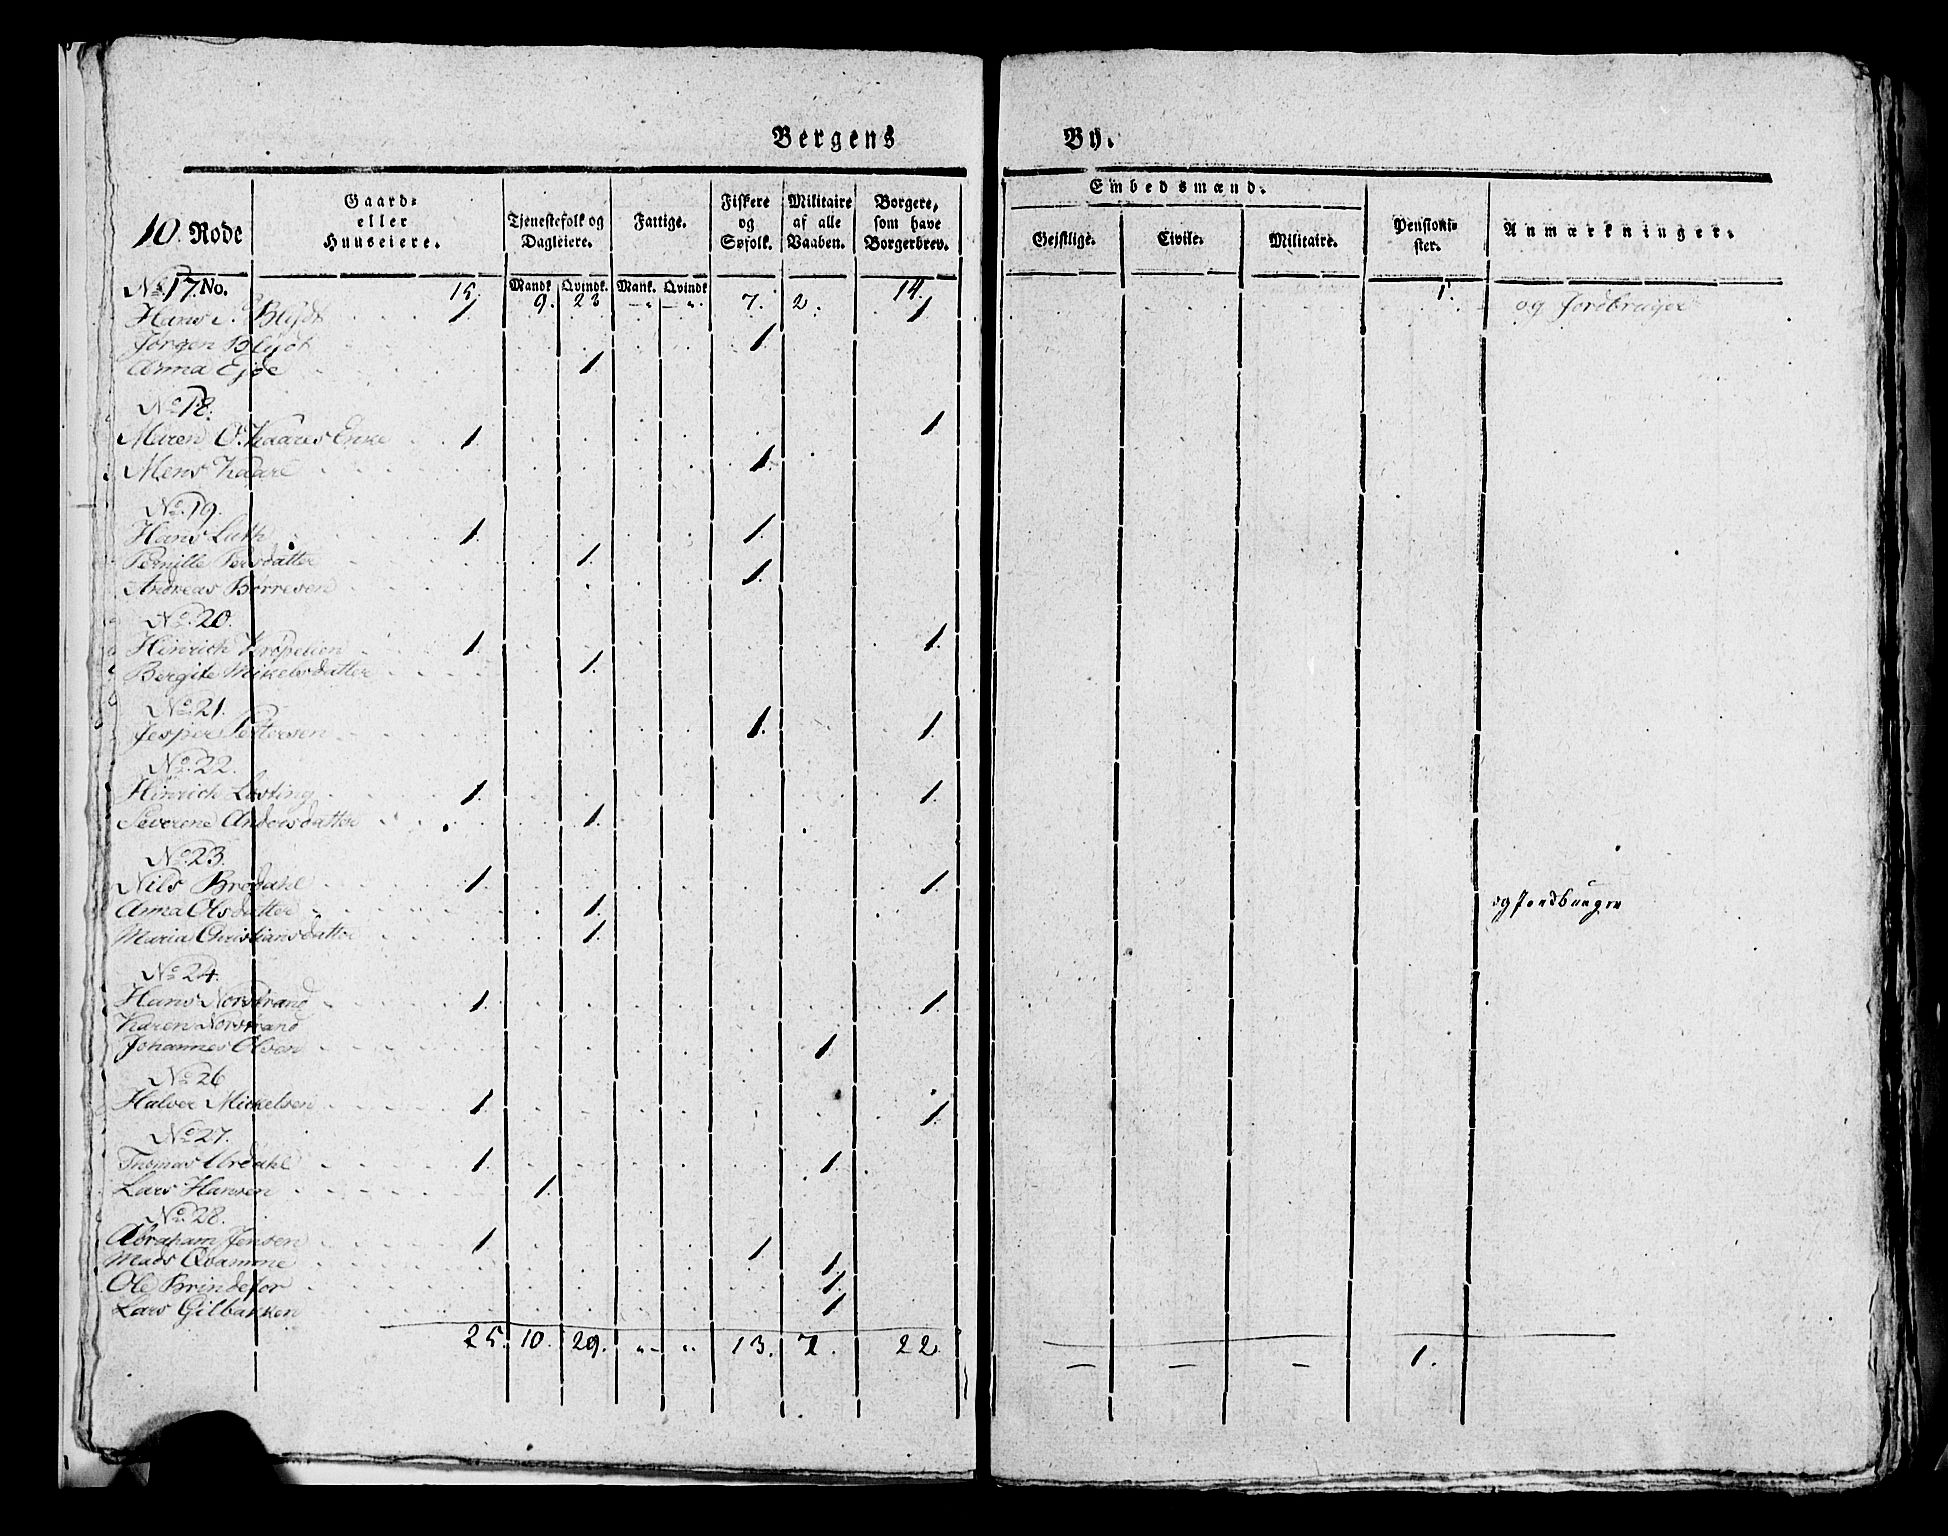 Bergens By.
10. Rode No. Gaard= eller Huuseiere. Tjenestefolk og Dagleiere. Mandk. Qvindk. Fattige. Mank. Qvindk. Fiskere og Søfolk. Militaire af alle Vaaben. Borgere, som have Borgerbrev. Embedsmænd. Geistlige. Civile. Militaire. Pensioni= ster. Anmærkninger.
No 17. 15. 9. 23 „ „ 7. 2. 14. 1.
Hans Blydt 1 1 og Jordbruger
Jørgen Blydt 1.
Anna Eyde 1
No 18.
Maren O. Kaares Enke 1. 1
Mons Kaare 1.
No 19.
Hans Luth 1. 1.
Pernille Persdatter 1.
Andreas Børresen 1.
No 20.
Hinrich Krøpelien 1. 1.
Bergite Mikelsdatter 1.
No 21.
Jesper Pettersen 1. 1.
No 22.
Hinrich Losting 1. 1.
Severene Andersdatter 1.
No 23.
Nils Brodahl 1. 1.
Anna Olsdatter 1. og Jordbruger
Maria Christiansdatter 1.
No 24.
Hans Norstrand 1. 1.
Karen Norstrand
Johannes Olsen 1.
No 26
Halver Mickelsen 1. 1.
No 27.
Thomas Urdahl 1. 1.
Lars Hansen 1.
No 28.
Abraham Jensen 1. 1.
Mads Qvamme 1.
Ole Brindefor 1.
Lars Gilbakken 1
25. 10. 29. „ „ 13. 7. 22 — — — 1.